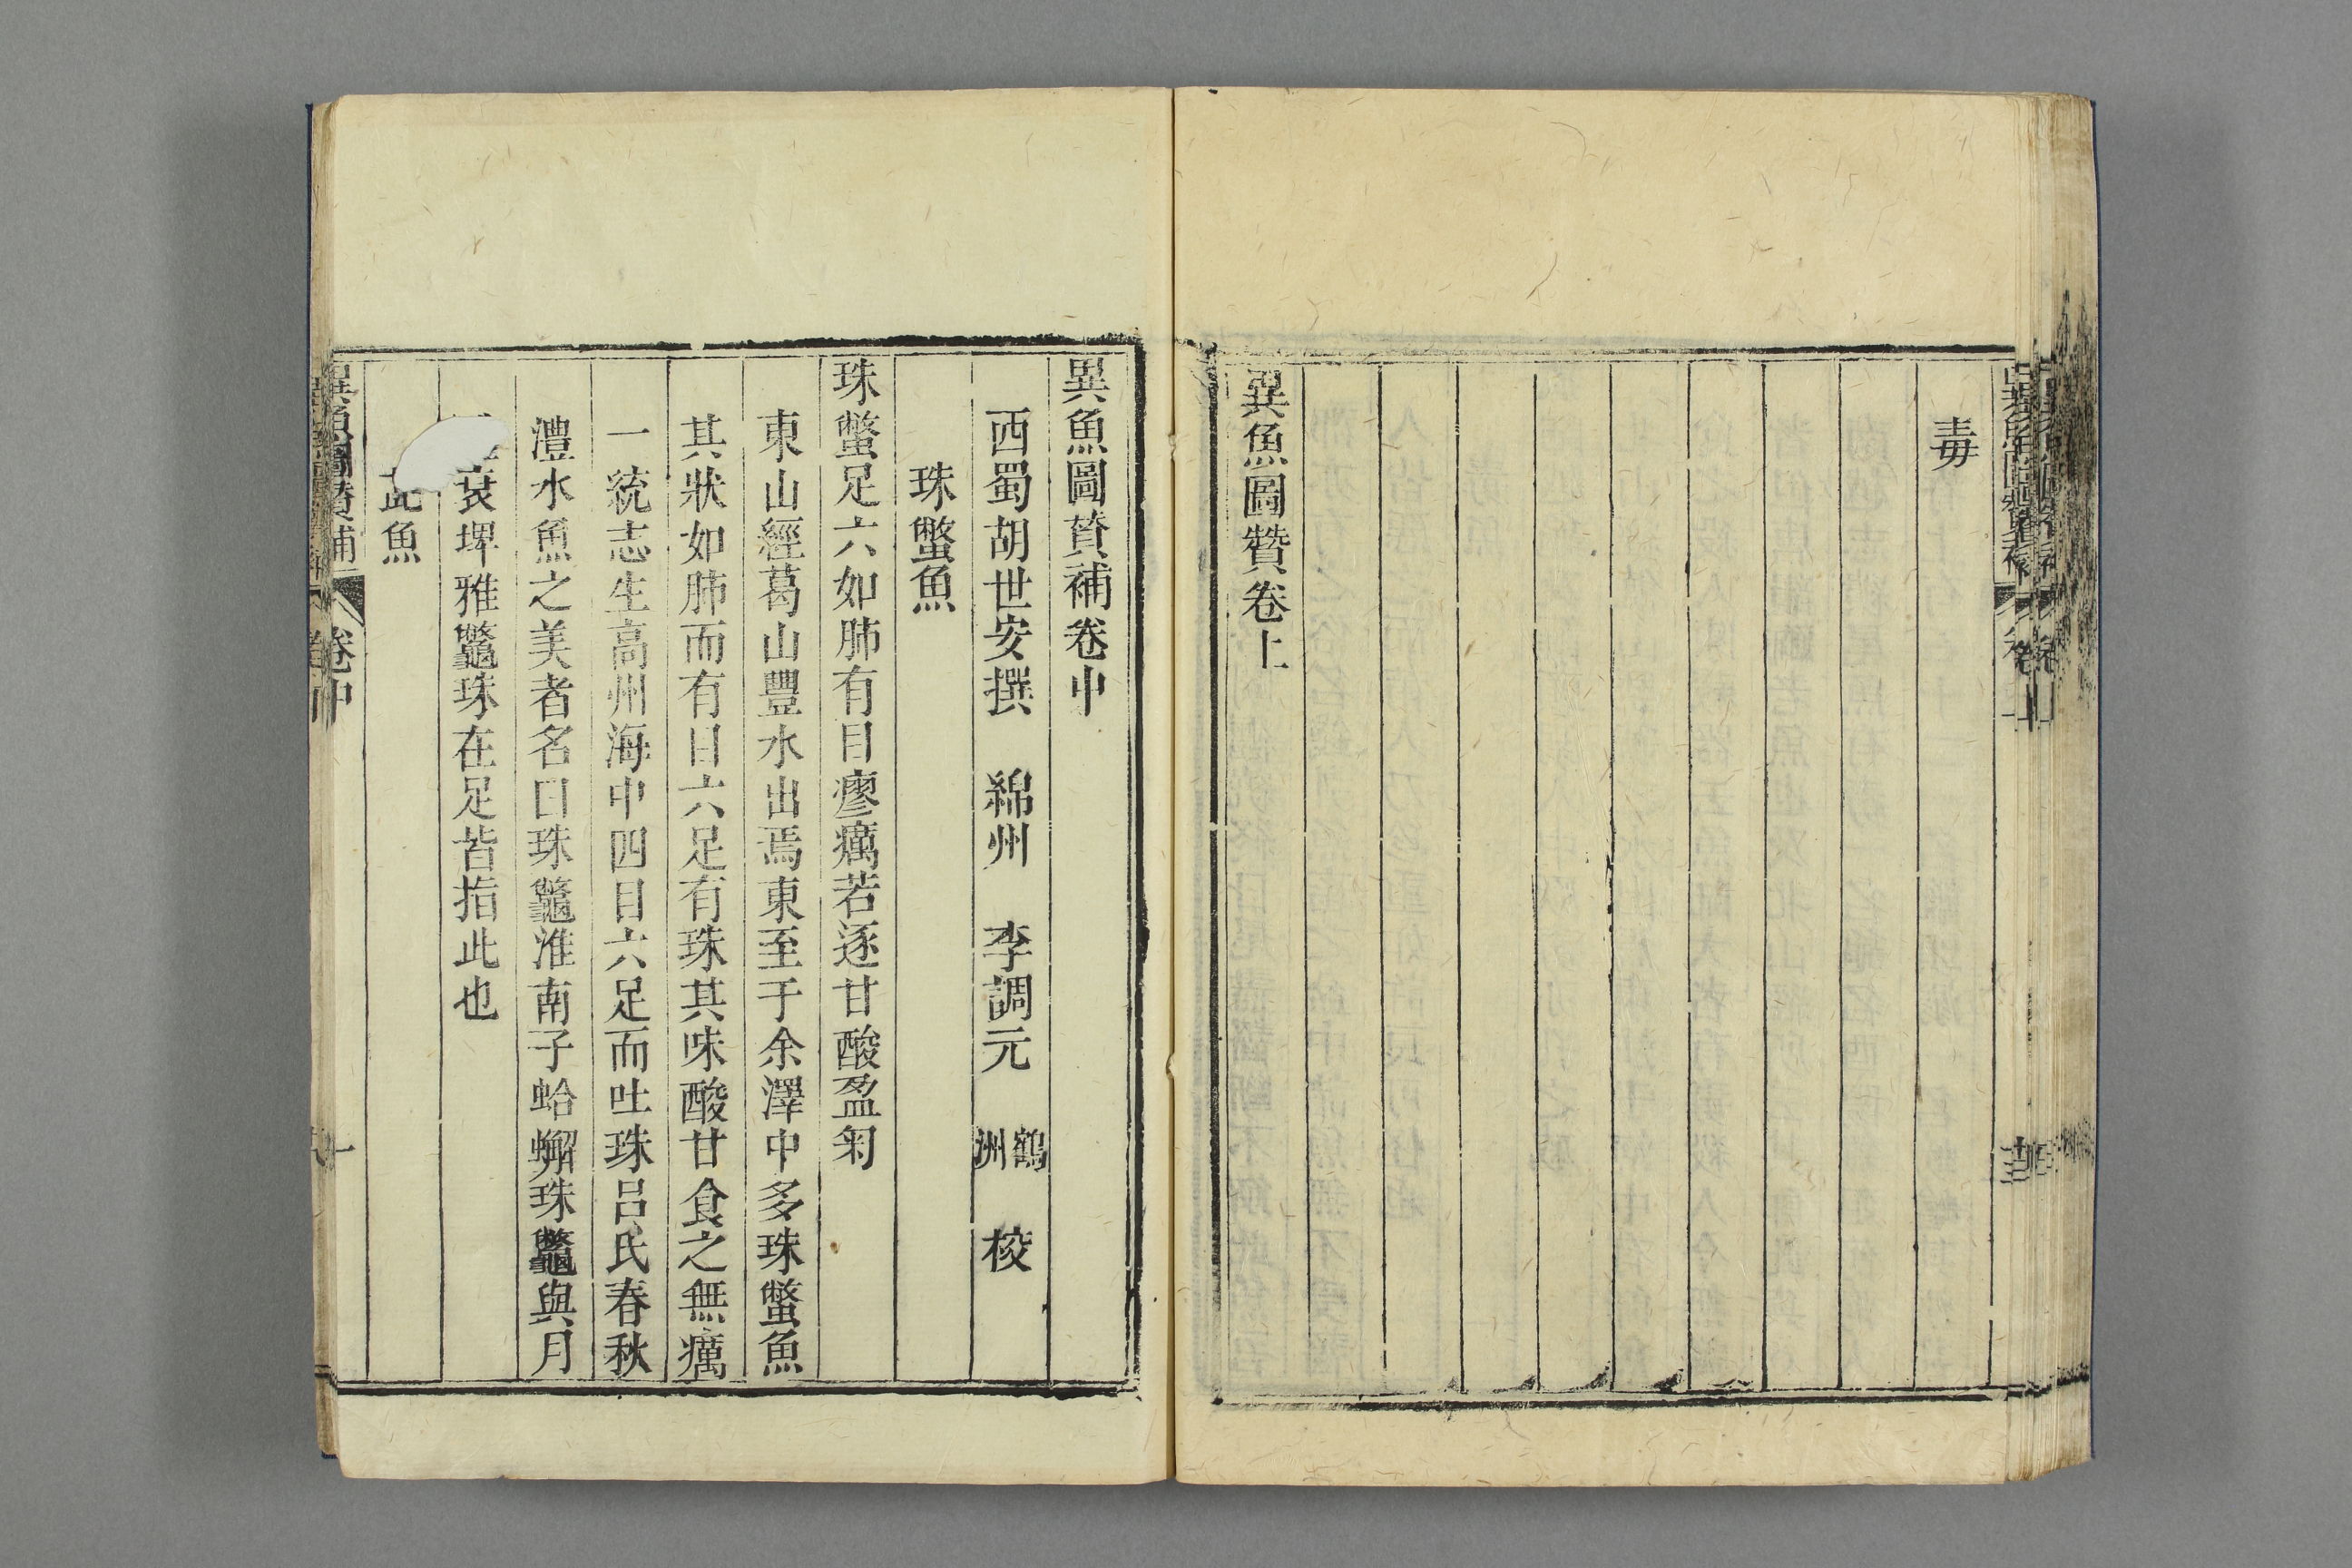 毒
異魚圖贊卷上
異魚圖贊補卷中
西蜀胡世安撰 綿州 李調元 鶴洲 校
珠蟞魚
珠蟞足六如肺有目瘳癘若逐甘酸盈匊
東山經葛山豐水出焉東至于余澤中多珠蟞魚
其狀如肺而有目六足有珠其味酸甘食之無癘
一統志生高州海中四目六足而吐珠呂氏春秋
澧水魚之美者名曰珠鼈淮南子蛤蠏珠鼈與月
衰埤雅鼈珠在足皆指此也
魚
異魚圖贊補 卷中 一